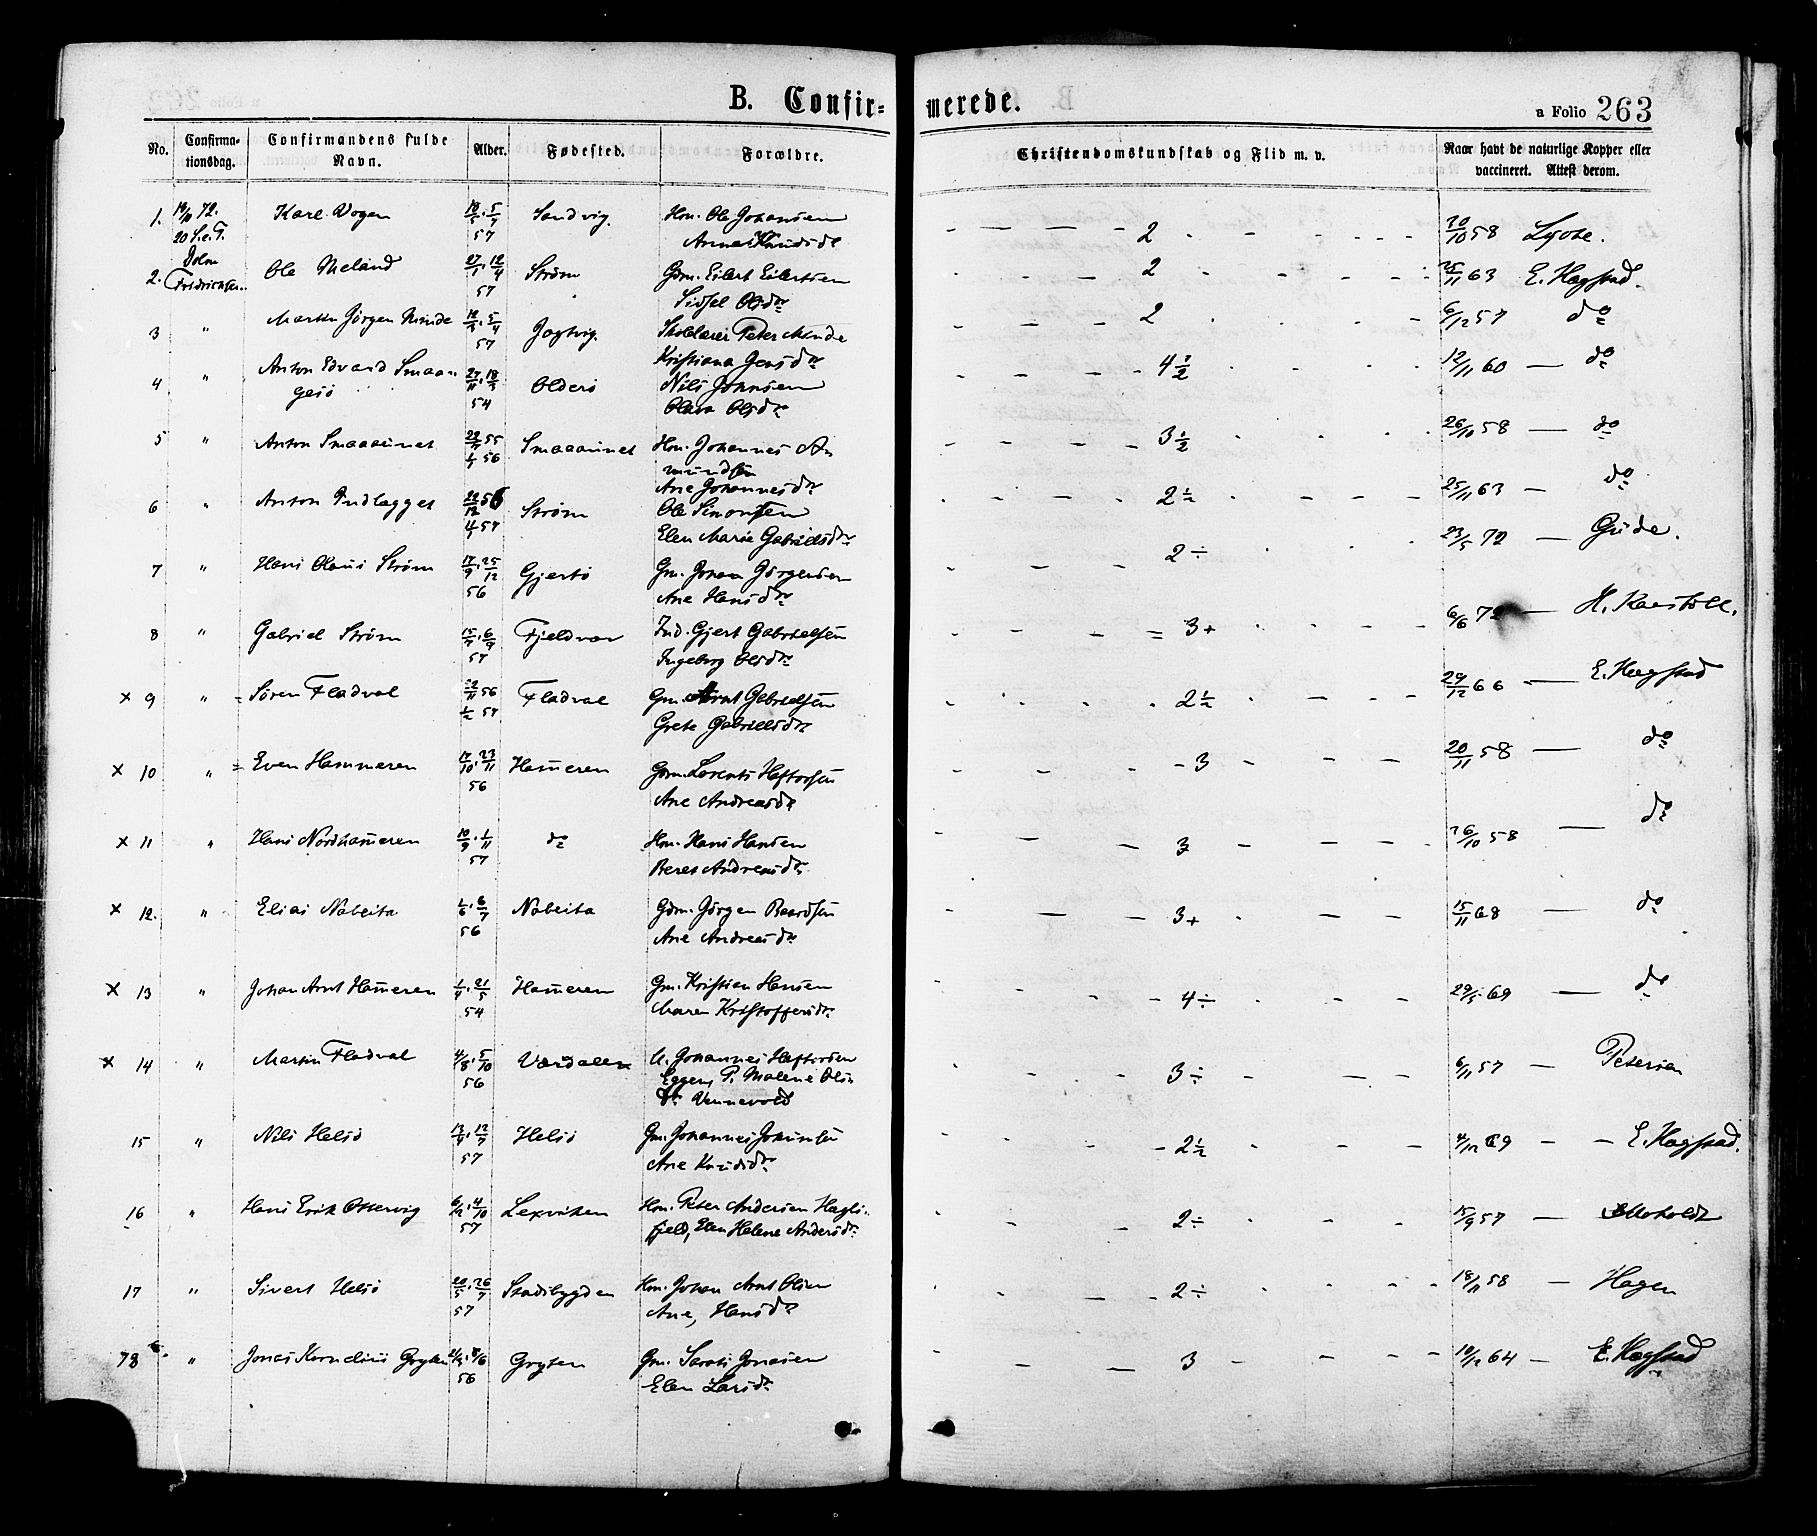 B. Confir-
merede.
a Folio 263
No.
Confirma-
tionsdag.
Confirmandens fulde
Navn.
Alder.
Fødested.
Forældre.
Christendomskundskab og Flid m. v.
Naar havt de naturlige Kopper eller
vaccineret. Attest derom.
1. Karl Vogen 57 Sandvig. Hm. Ole Johansen
Anne Knudsdr
2 58 Lyose.
20 S. e. T.
Dolm
2. Fredrichsen. Ole Meland 57 Strøm Gdm. Eilert Eilertsen
Sidsel Olsdr
2 25/11 63 E. Hegstad.
3 " Martin Jørgen Minde 57 Jøstvig. Skolelærer Peter Minde
Kristiana Jensdr
2 6/12 57 do
4 " Anton Edvard Smaa-
gesø
54 Olderø Nils Johnsen
Olava Olsdr
4 1/2 12/11 60 — do
5 " Anton 55
56 Hm. Johannes A-
mundsen
Ane Johannesdr
3 1/2 26/10 58 — do
6 " Anton Indlægget 56
57 Strøm Ole Simonsen
Elen Marie Gabrielsdr
2 1/2 25/11 63 — do
7 " Hans Olaus Strøm 17/9 . 25/12
56 Gjertø Gm. Johan Jørgensen
Ane Hansdr
2 ÷ 23/5 72 — Gude.
8 " Gabriel Strøm 57 Fjeldvær Ind. Gjert Gabrielsen
Ingeborg Olsdr
3+ 6/6 72 —
x 9 " Søren Fladval 56
57 Fladval Gm. Arnt Gabrielsen
Grete Gabrielsdr
2 1/2 29/12 66 — E. Hegstad
x 10 " Even Hammeren 17/10 . 23/11
56 Ham̅eren Gdm. Lorents Haftorsen
Ane Andreasdr
3 20/11 58 — do
x 11 " Hans Nordham̅eren 10/9 . 1/11
57 do Hm. Hans Hansen
Beret Andreasdr
3 26/10 58 — do
x 12. " Elias Nabeita 1/6 . 6/7
56 Nabeita Gdm. Jørgen Baardsen
Ane Andreasdr
3+ 15/11 68 — do
x 13 " Johan Arnt Ham̅eren 1/4 . 21/5
54 Ham̅eren Gm. Kristian Hansen
Maren Kristoffersdr
4 ÷ 29/5 69 — do
x 14 " Martin Fladval 4/8 . 5/10
56 Værdalen U. Johannes Haftorsen
Eggen, P. Malene Ols-
dr Vennevold
3 ÷ 6/11 57 — Petersen
15 " Nils Helsø 57 Helsø Gm. Johannes Johnsen
Ane Knudsdr
2 1/2 4/12 69 — — E. Hegstad.
16 " Hans Erik Ottervig 57 Lexviken Hm. Peter Andersen Hagli-
fjeld, Elen Helene Andersdr
2 ÷ 15/9 57 — Moholdt
17 " Sivert Helsø 20/5 . 26/7
57 Stadsbygden Hm. Johan Arnt Olsen
Ane, Hansdr
2 ÷ 18/11 58 — Hagen
" Jonas Kornelius Gryten 56 Gryten Gm. Jonasen
Elen Larsdr
3 10/12 64 — E. Hegstad